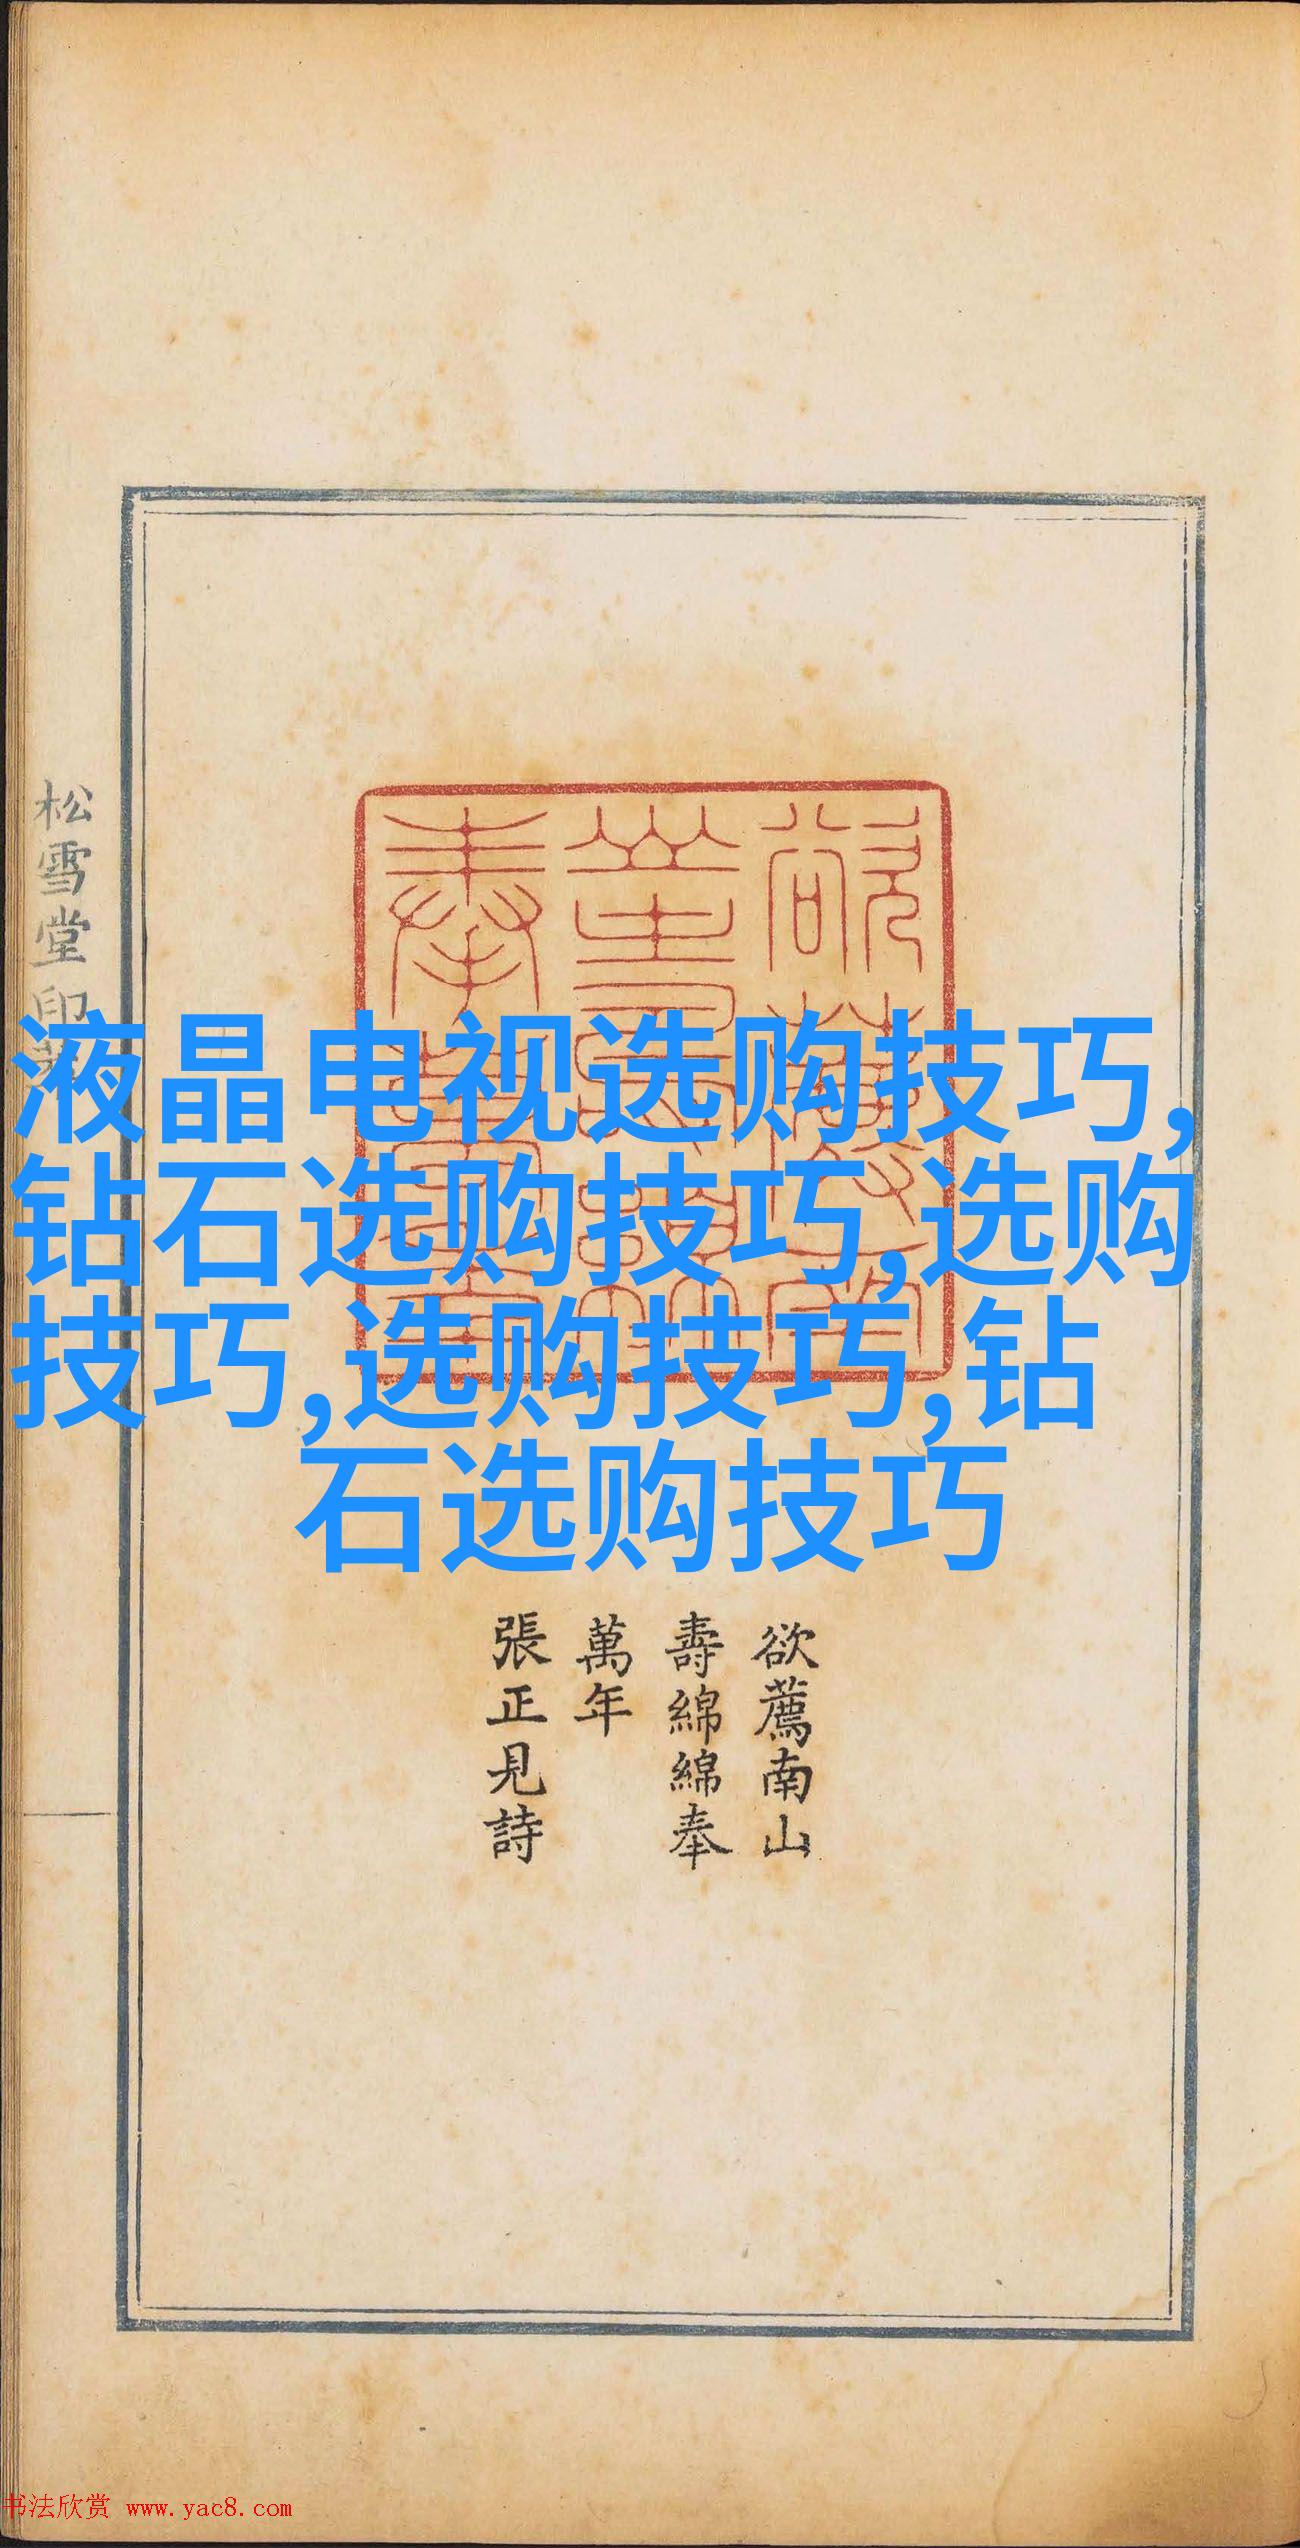 液晶电视选购技巧,
钻石选购技巧,选购
技巧,选购技巧,钻
石选购技巧
欲薦南山
壽綿綿奉
萬年
張正見詩
松雪堂印
书法欣赏 www.yac8.com